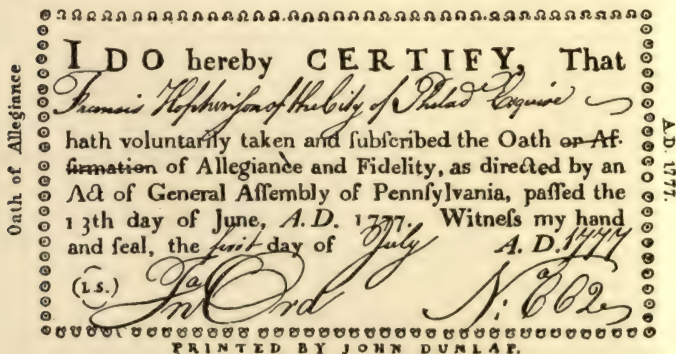 I DO hereby CERTIFY, That
Francis Hopkinson of the City of Philadᵉ Esquire
hath voluntarily taken and ſubſcribed the Oath or Af-
firmation of Allegiance and Fidelity, as directed by an
Act of General Aſſembly of Pennſylvania, paſſed the
13th day of June, A. D. 1777. Witneſs my hand
and ſeal, the firſt day of July A. D. 1777
(L.S.) Jnᵃ Ord Nᵒ:
PRINTED BY JOHN DUNLAP.
Oath of Allegiance
A.D. 1777.